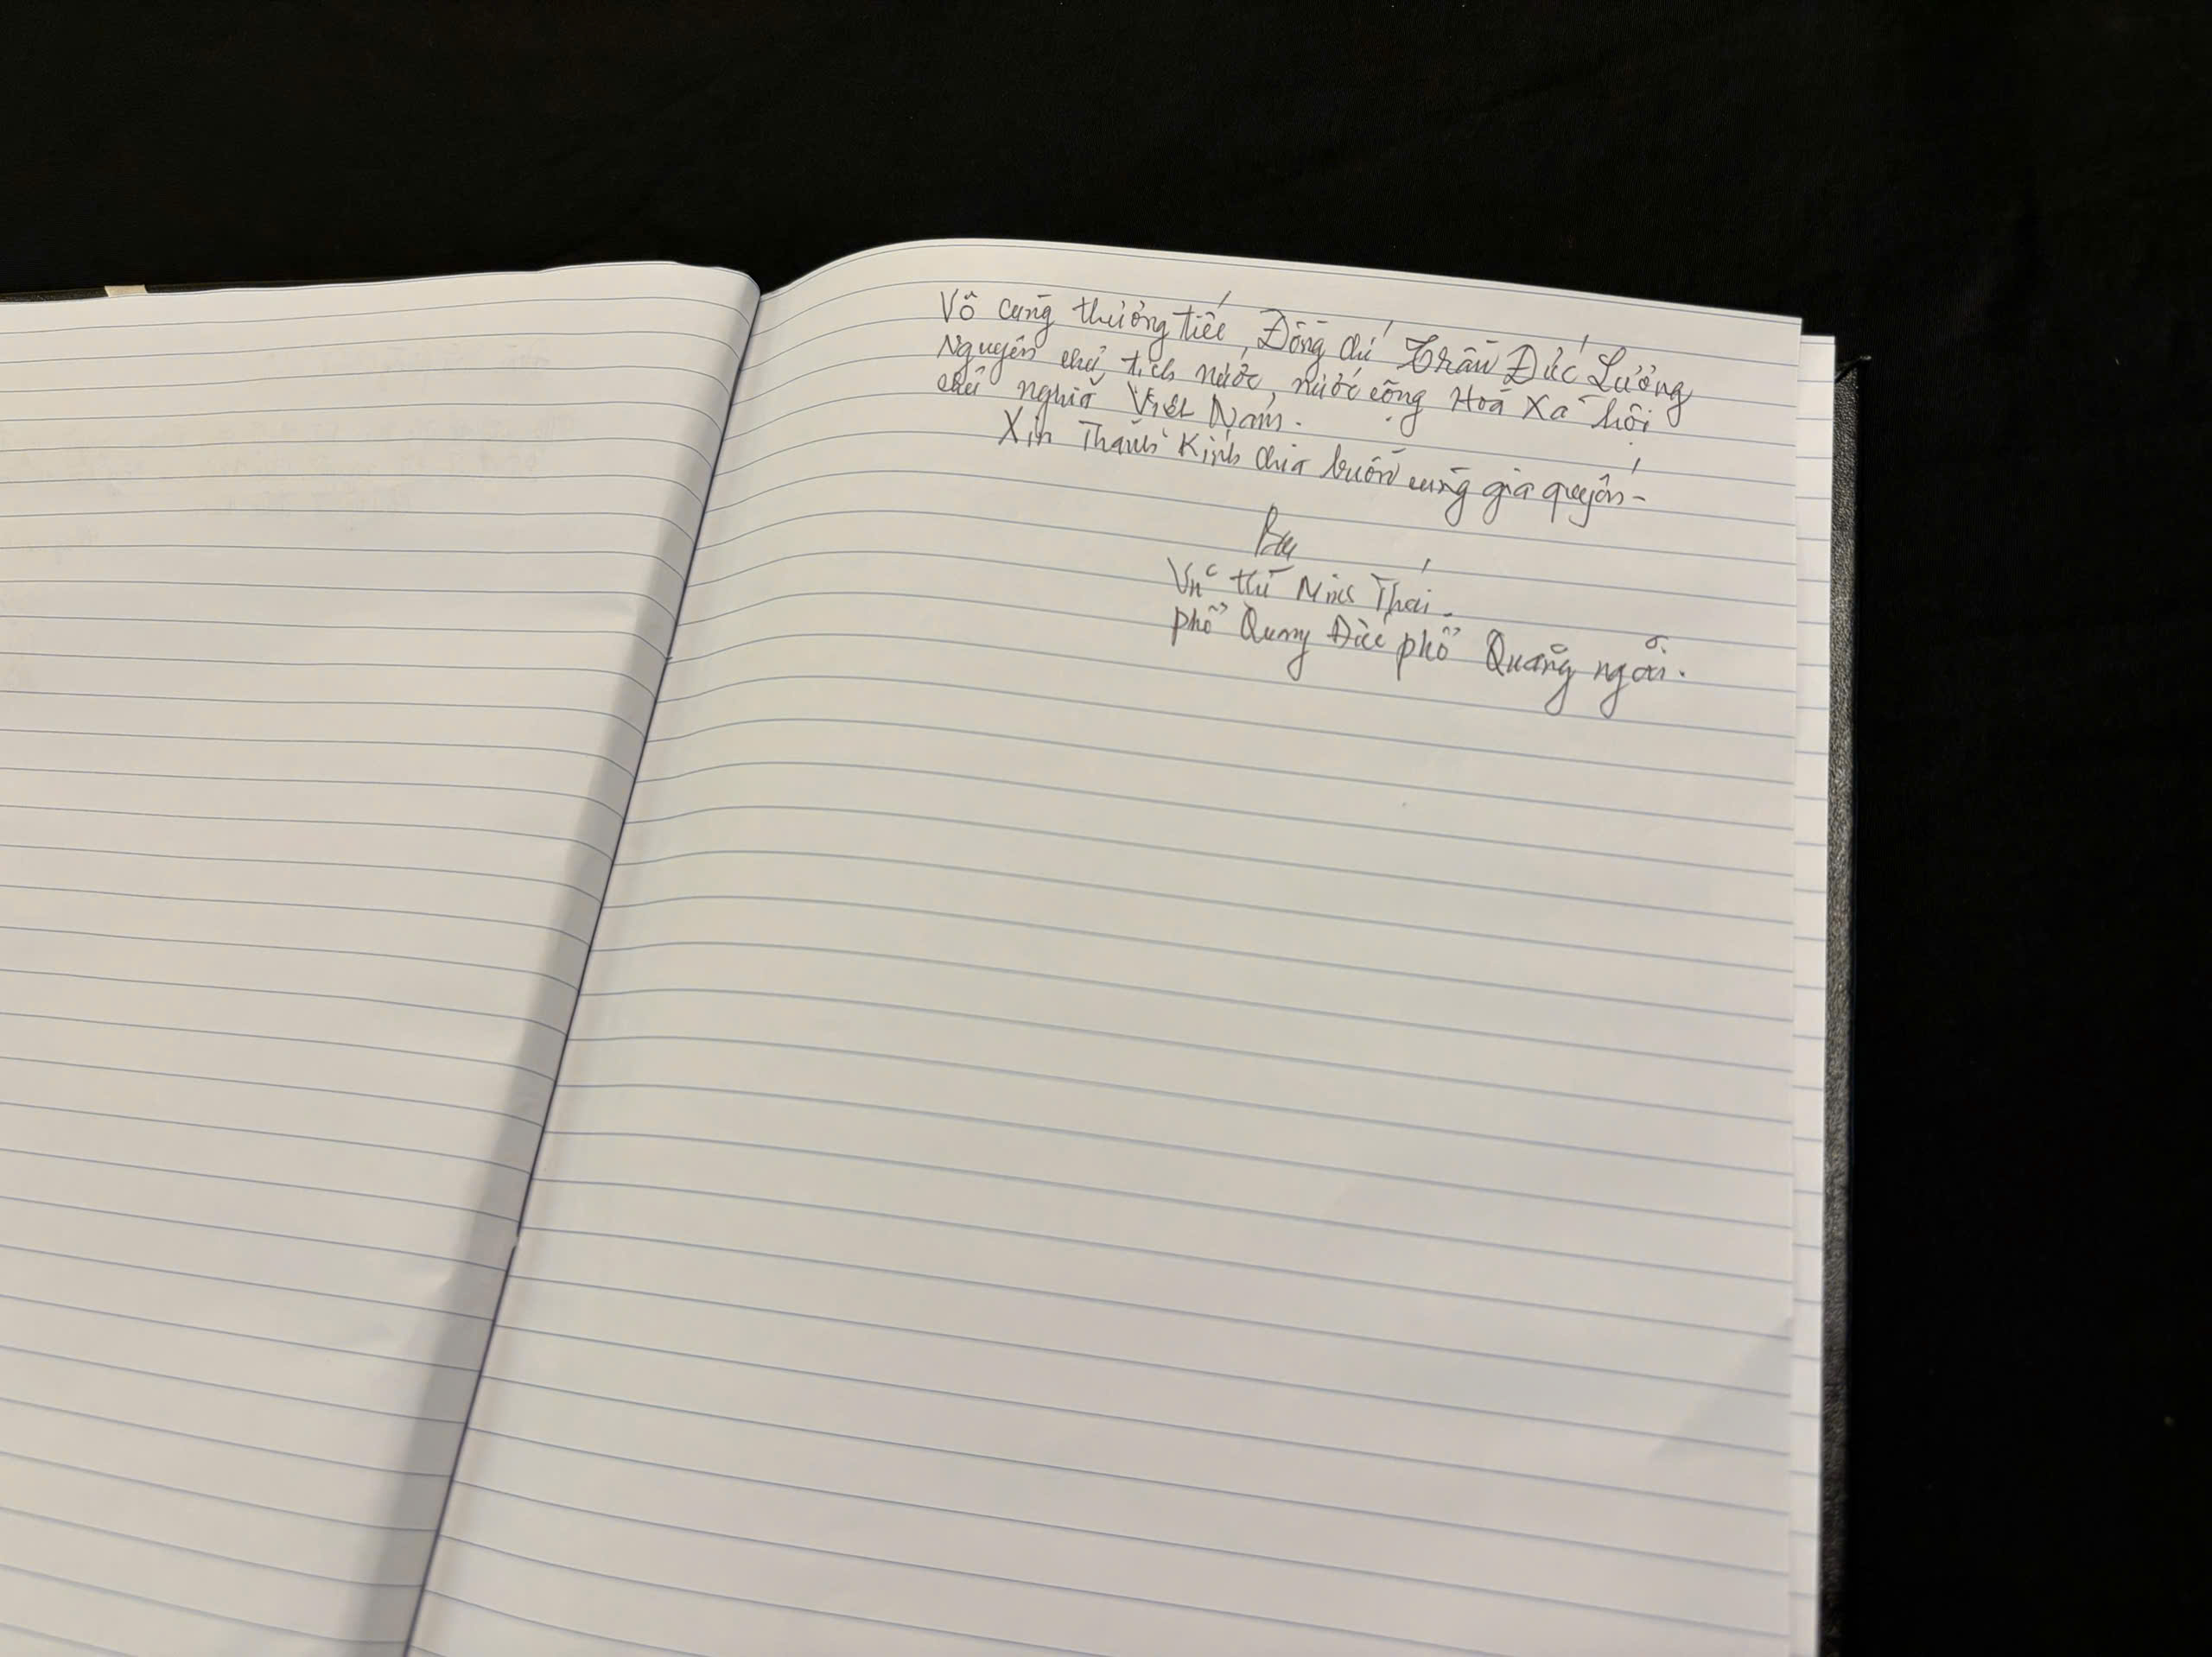 Vô cùng thương tiếc, Đồng chí Trần Đức Lương
Nguyên chủ tịch nước, nước cộng Hoà Xã hội
chủ nghĩa Việt Nam.
Xin Thành Kính chia buồn cùng gia quyến-
thị Minh Thái.
phổ Quang Đức phổ Quảng ngãi.